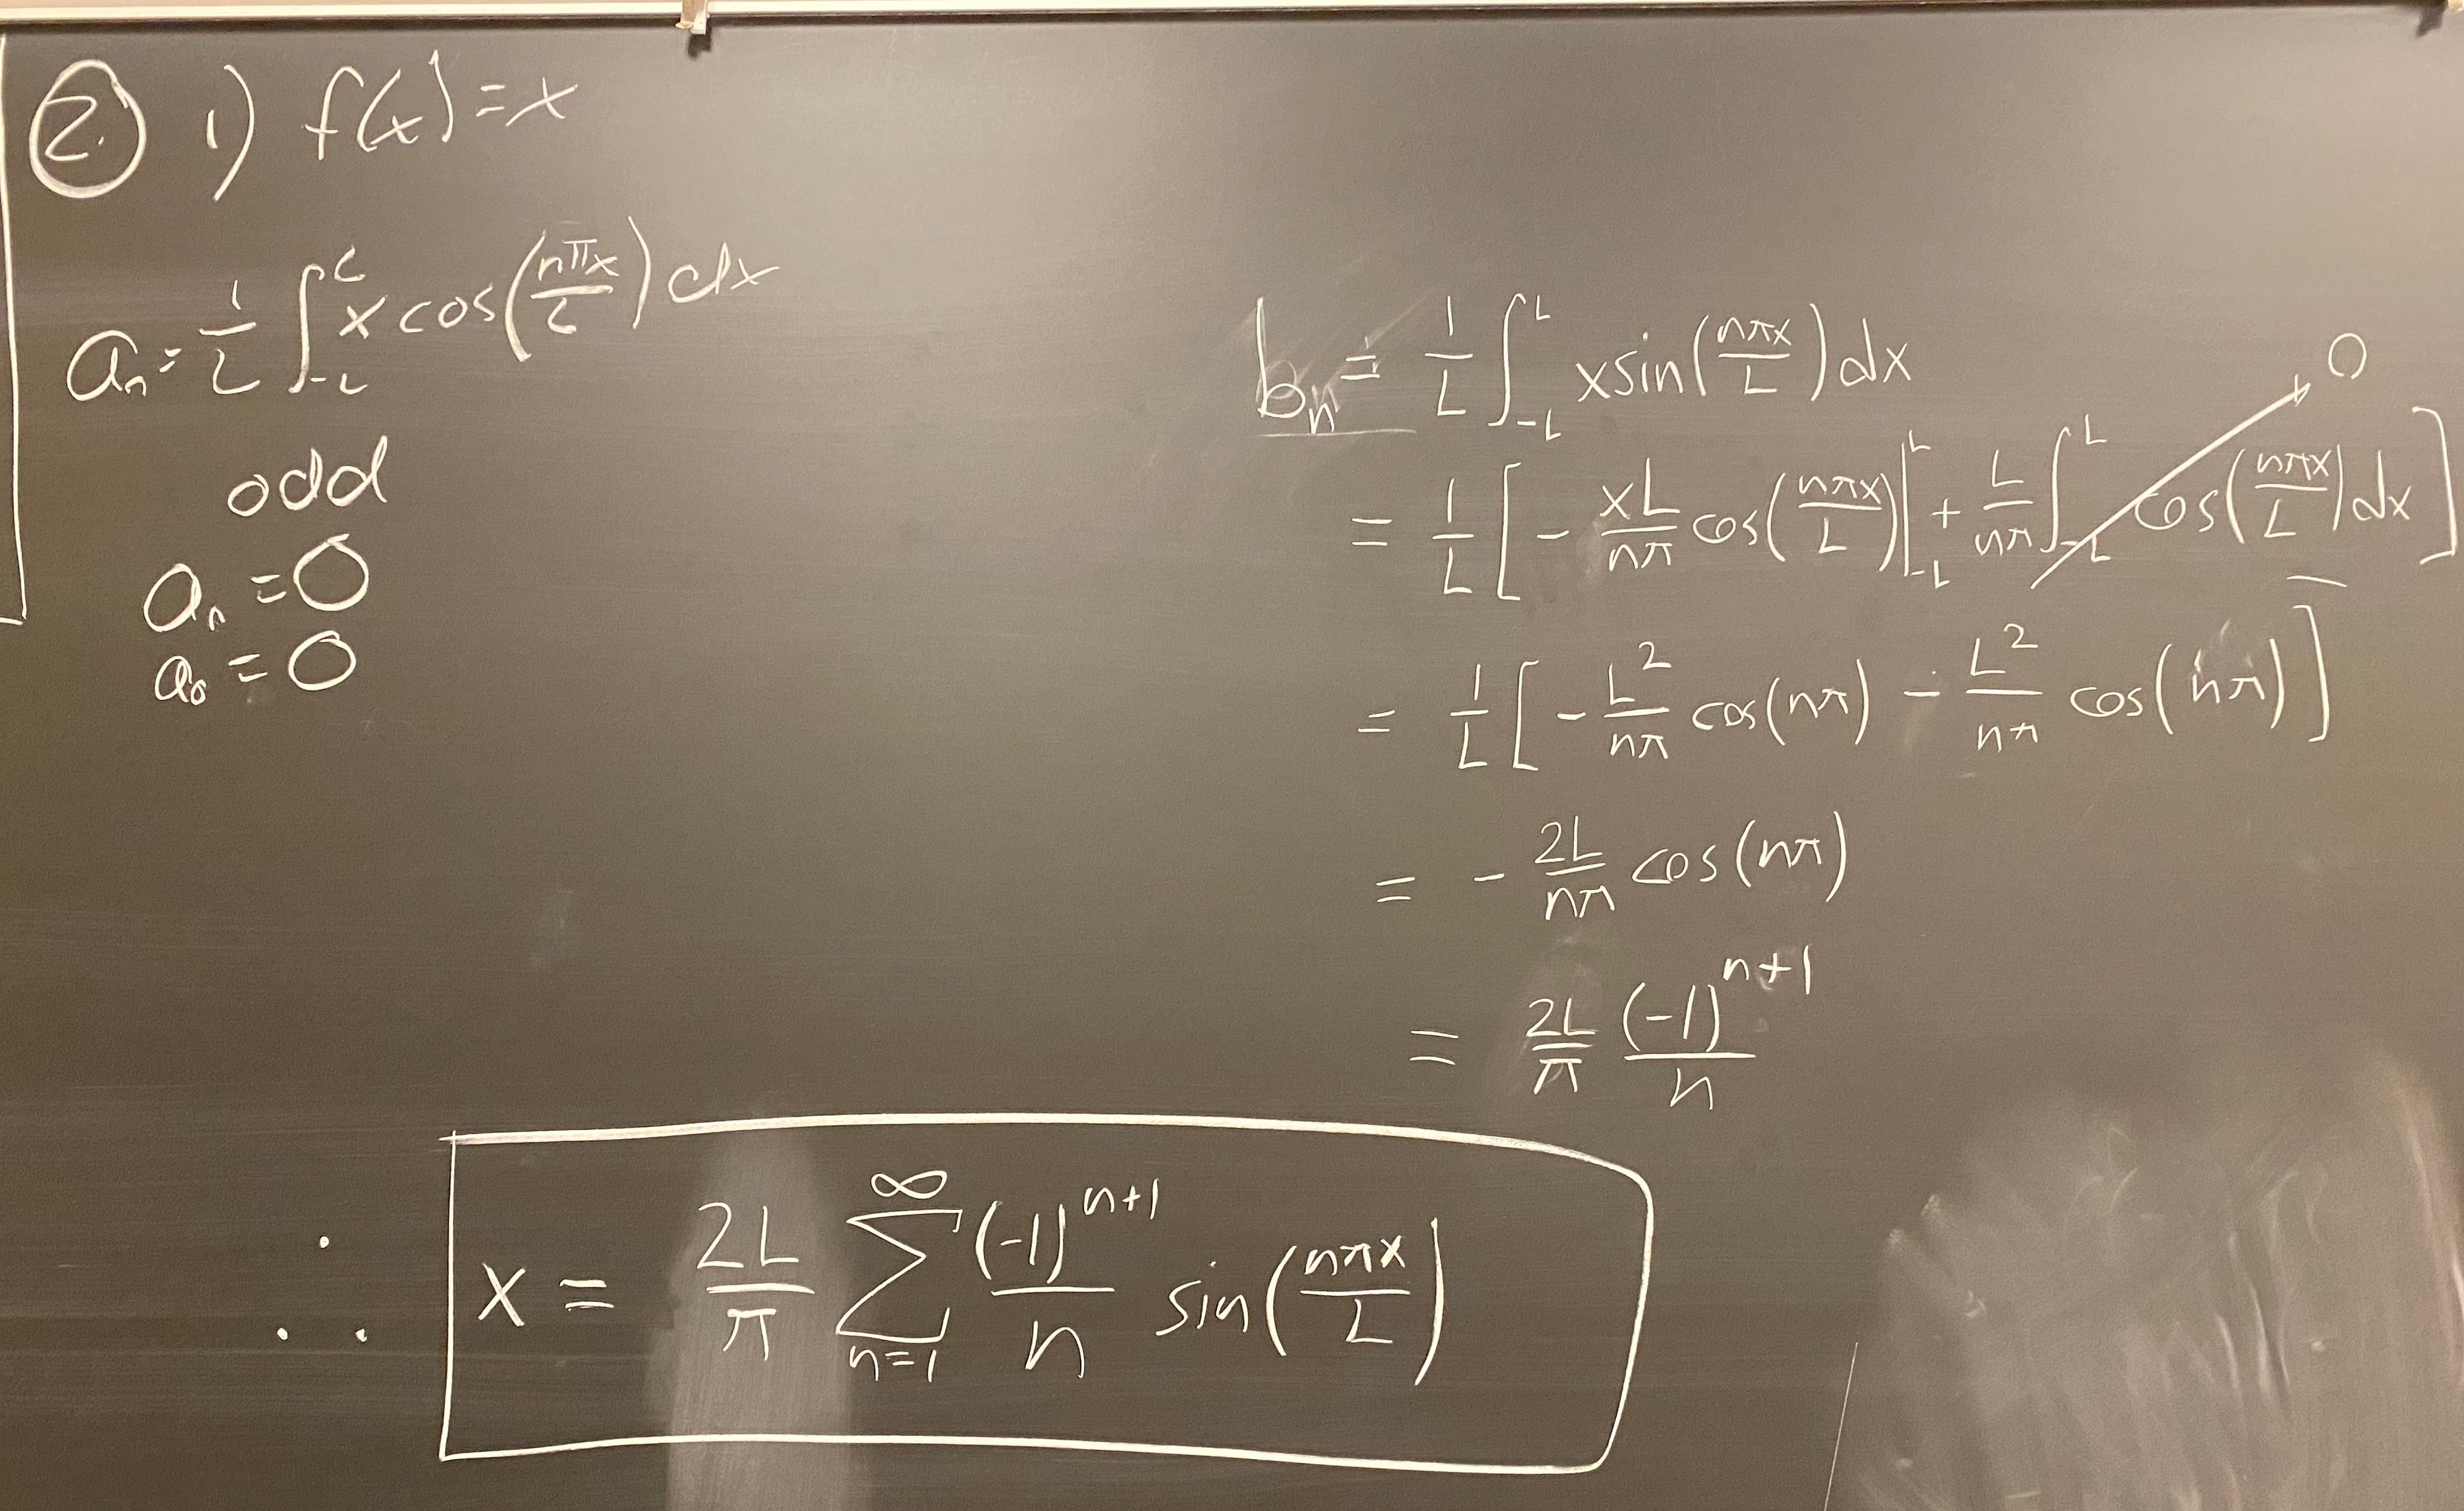 ② 1) f(x) = x
aₙ = 1/L ∫_{-L}^{L} x cos(nπx/L) dx
odd
aₙ = 0
a₀ = 0
bₙ = 1/L ∫_{-L}^{L} x sin(nπx/L) dx
= 1/L [ - xL/nπ cos(nπx/L) |_{-L}^{L} + L/nπ ∫_{-L}^{L} cos(nπx/L) dx ] → 0
= 1/L [ - L²/nπ cos(nπ) - L²/nπ cos(nπ) ]
= - 2L/nπ cos(nπ)
= 2L/π (-1)^{n+1}/n
∴ x = 2L/π ∑_{n=1}^{∞} (-1)^{n+1}/n sin(nπx/L)